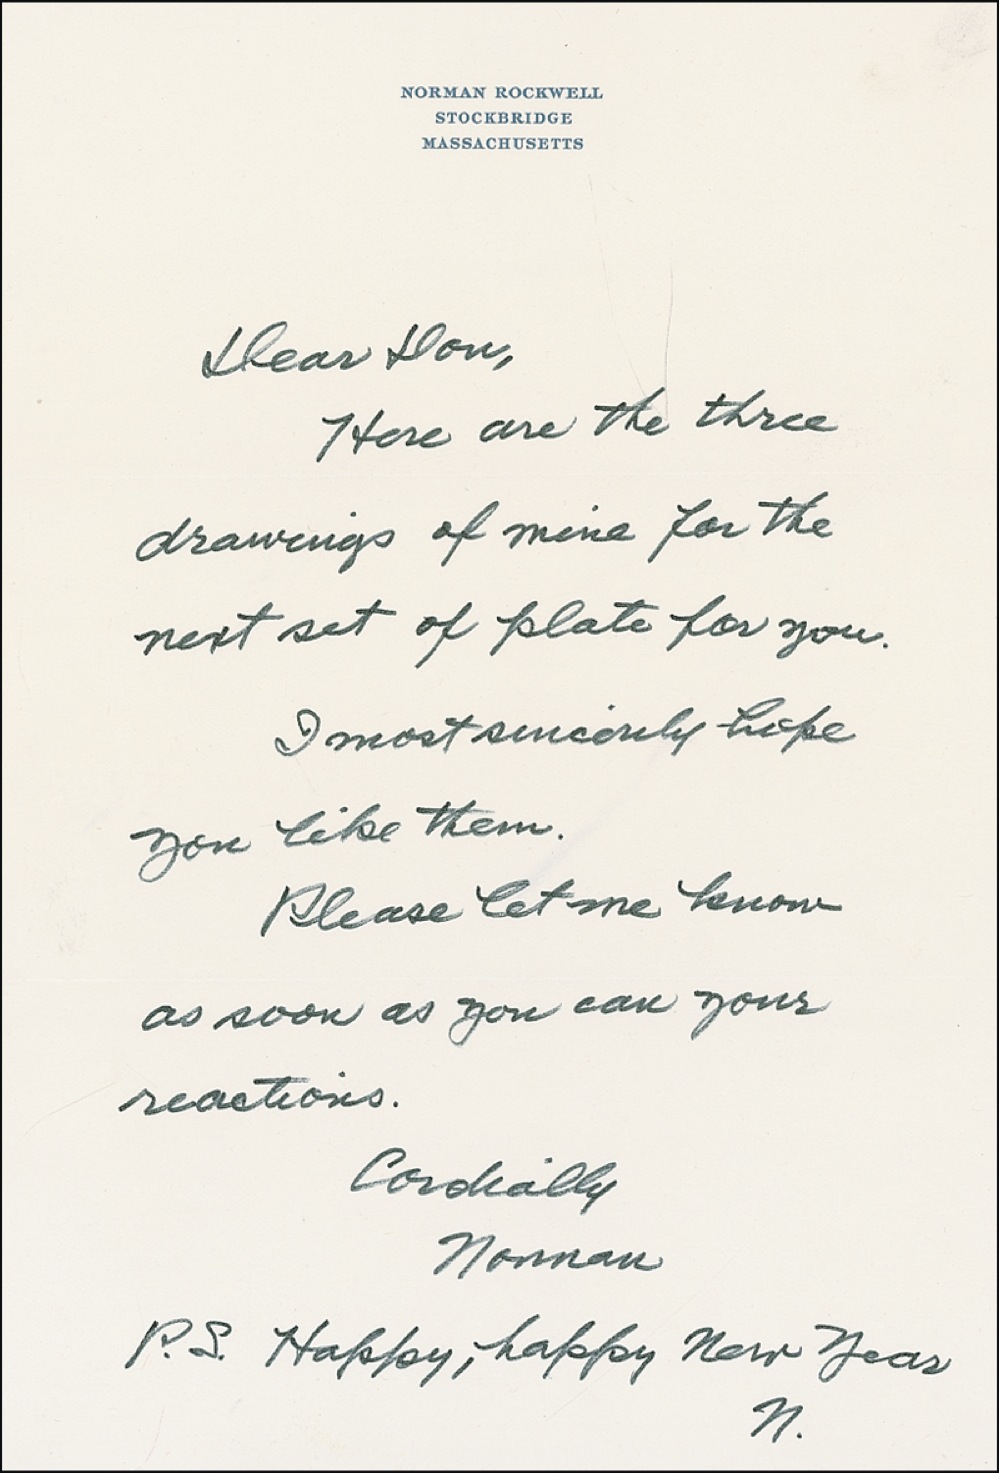 NORMAN ROCKWELL
STOCKBRIDGE
MASSACHUSETTS
Dear Don,
Here are the three
drawings of mine for the
next set of plate for you.
I most sincerely hope
you like them.
Please let me know
as soon as you can your
reactions.
Cordially
Norman
P.S. Happy, happy New Year
N.